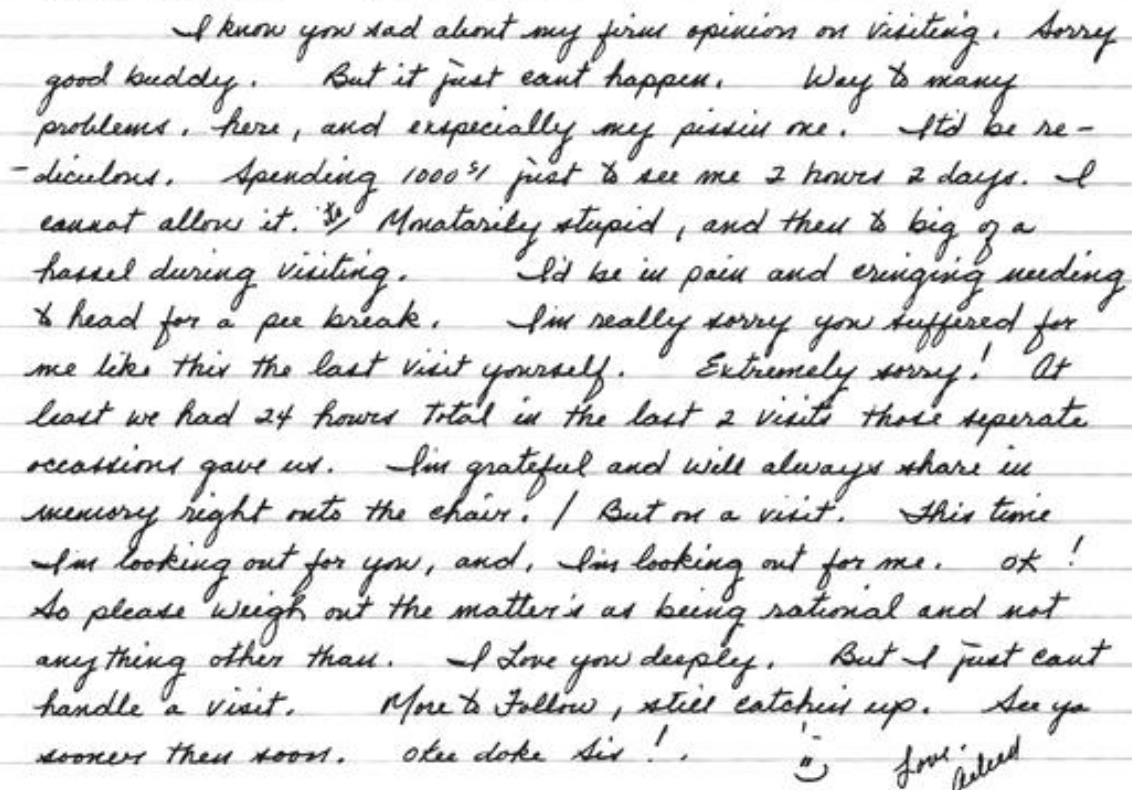 I know you sad about my firm opinion on visiting. Sorry
good buddy. But it just cant happen. Way to many
problems, here, and exspecially my pissin one. Itd be re-
-diculous. Spending 1000s$ just to see me 2 hours 2 days. I
cannot allow it. Monatarily stupid, and then to big of a
hassel during visiting. I'd be in pain and cringing needing
to head for a pee break. Im really sorry you suffered for
me like this the last visit yourself. Extremely sorry! At
least we had 24 hours total in the last 2 visits those seperate
occassions gave us. Im grateful and will always share in
memory right onto the chair. / But on a visit. This time
Im looking out for you, and, Im looking out for me. OK!
So please weigh out the matter's as being rational and not
anything other than. I Love you deeply. But I just cant
handle a visit. More to Follow, still catchin up. See ya
sooner then soon. Okee doke Sis!.
Love